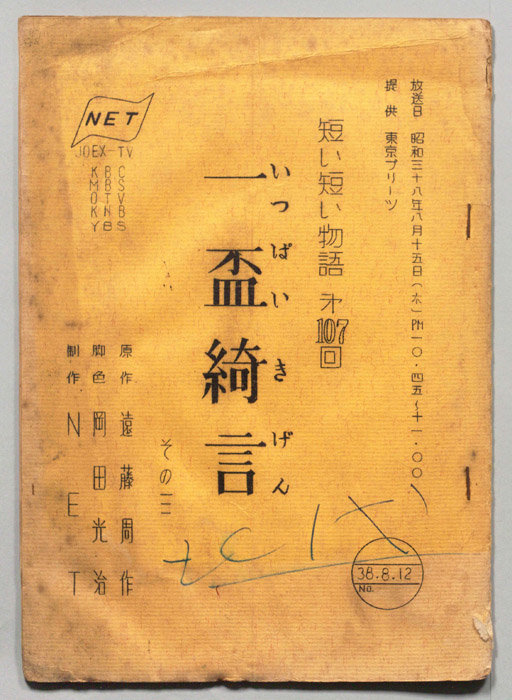 放送日 昭和三十八年八月十五日(木)PM一〇・四五~十一・〇〇
提供 東京プリーツ
短い短い物語 第107回
いっぱいきげん
一盃綺言
その三
原作 遠藤周作
脚色 岡田光治
制作 NET
NET
JOEX-TV
KBC
MBS
OTV
KNB
YBS
38.8.12
No.